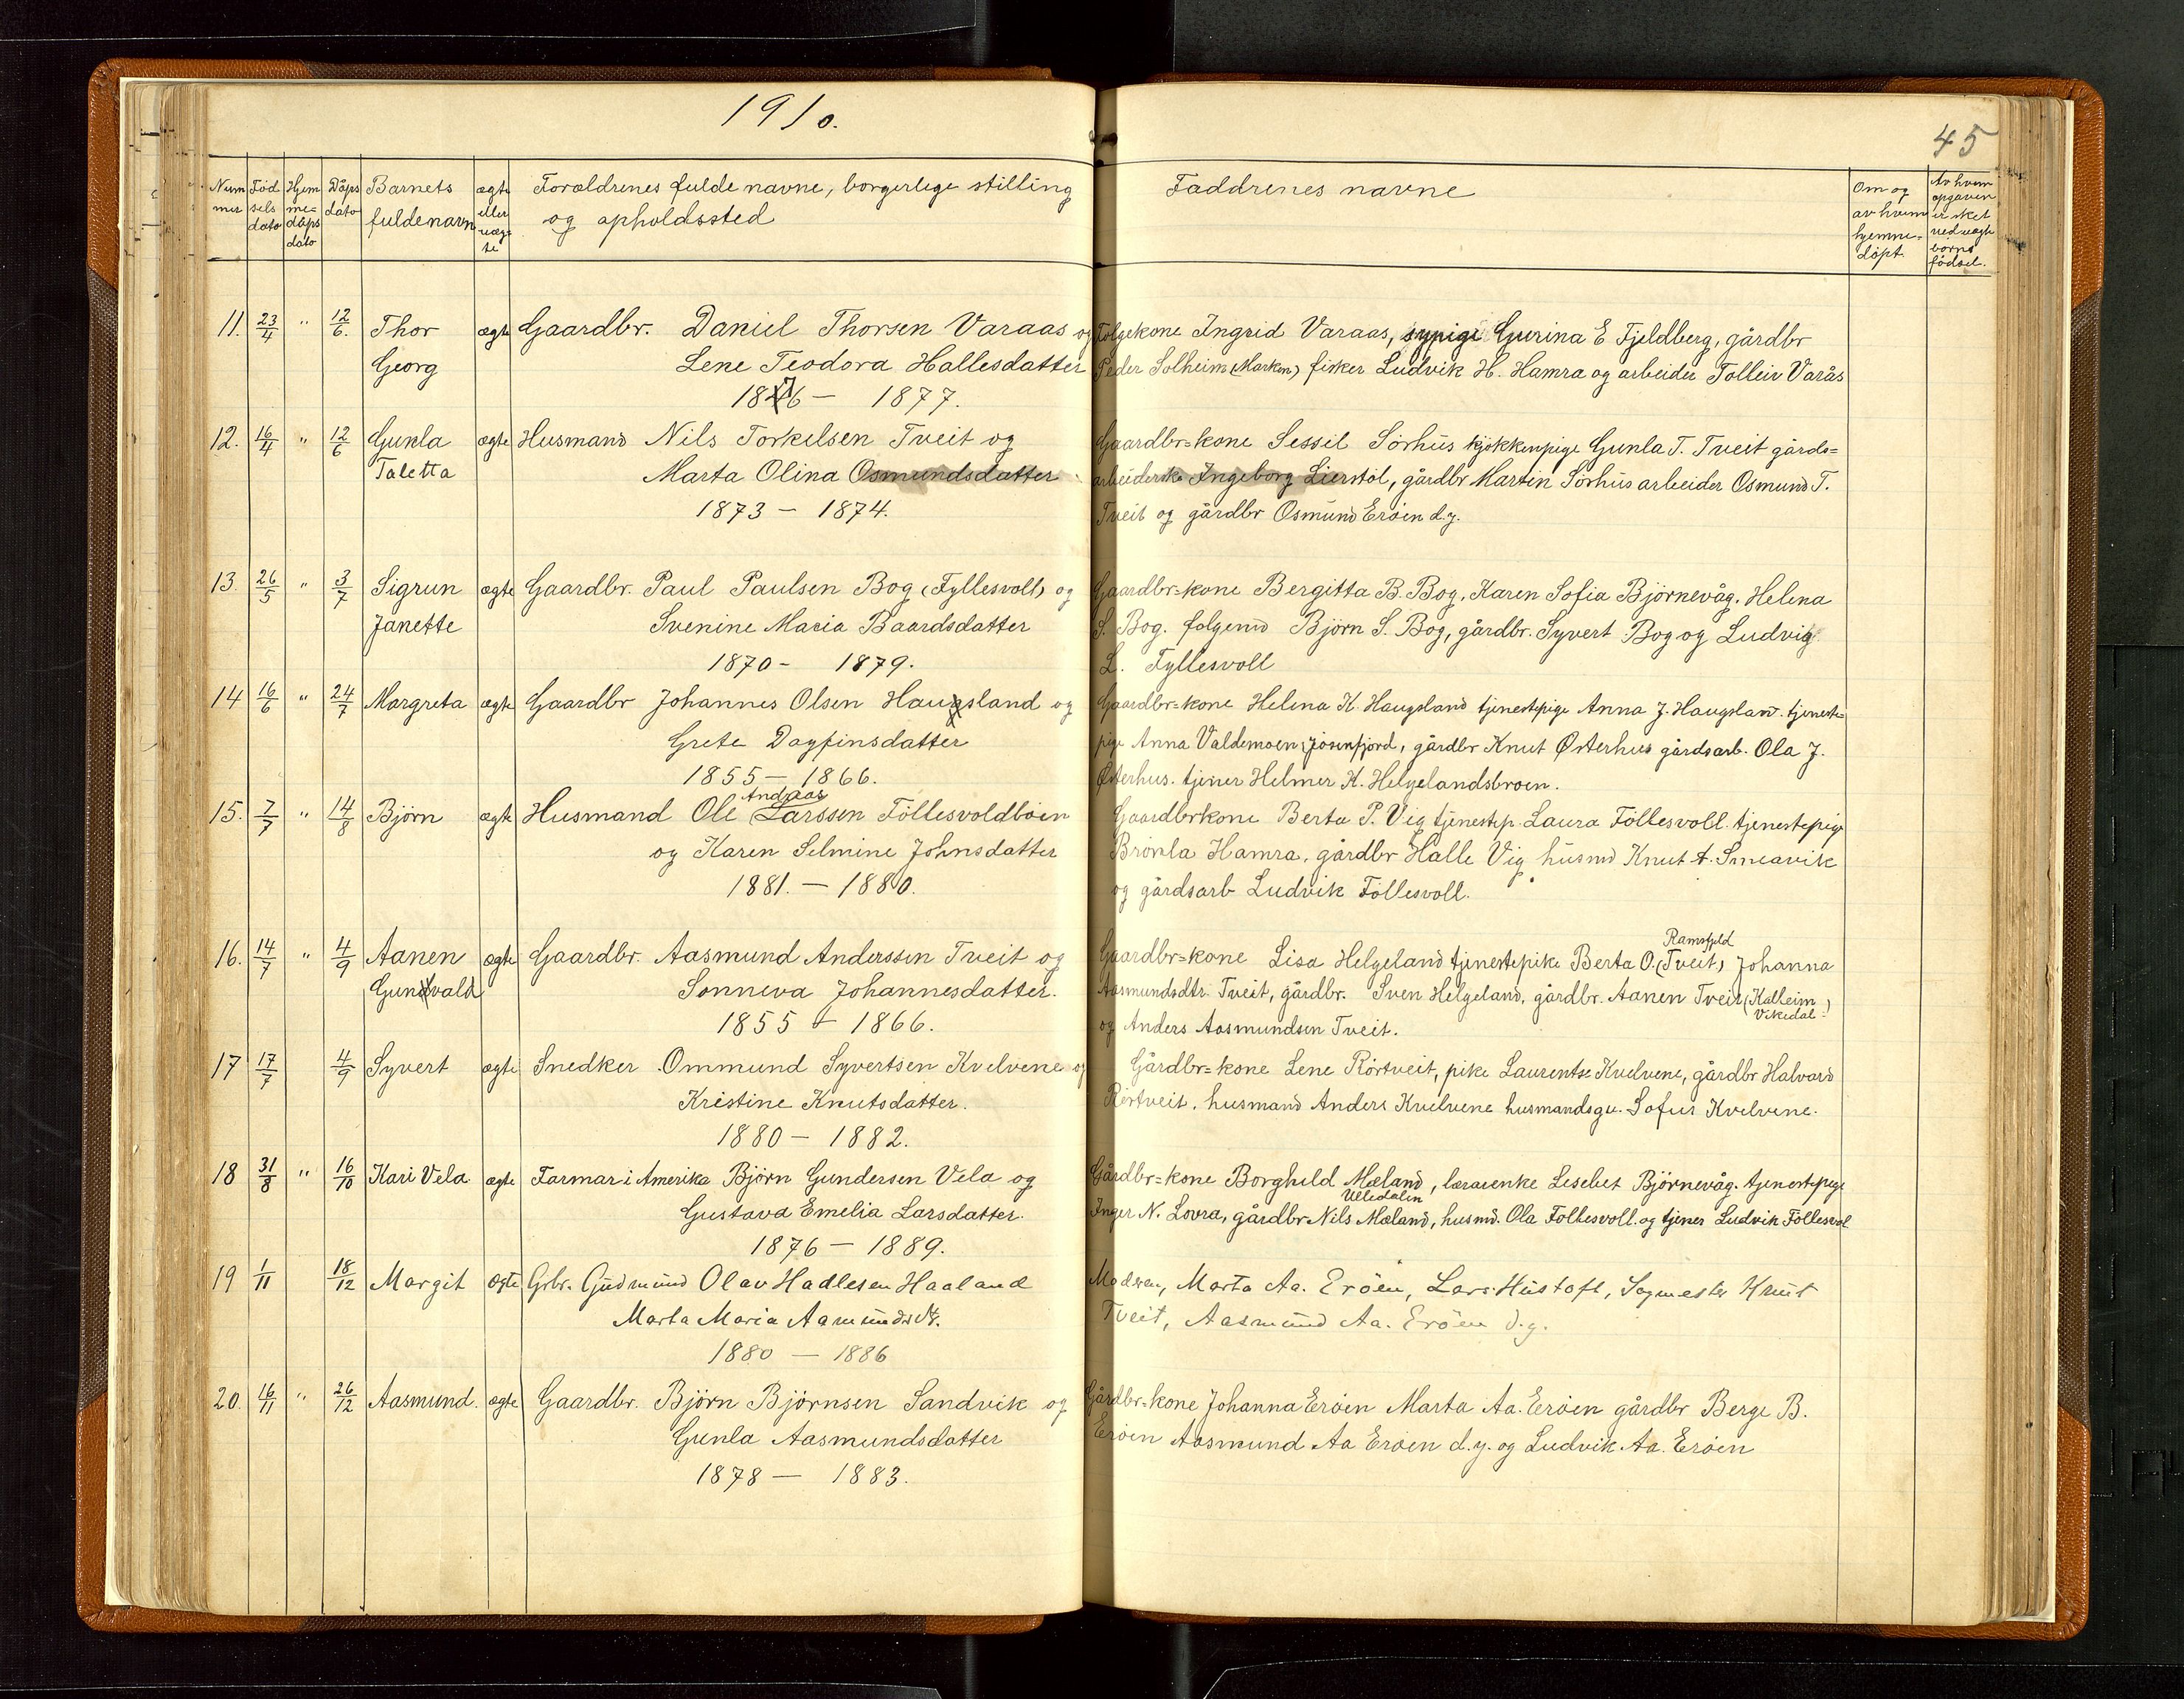 1910.
45
Num Fød Hjem Dåps Barnets ægte Forældrenes fulde navne, borgerlige stilling Faddrenes navne Om og Av hvem
mer sels me= dato fulde navn eller og opholdssted av hvem opgaven
dato dåps uæg hjemme= er sket
dato te døpt. ved uægte
børns
fødsel.
11. 23/4 " 12/6. Thor ægte Gaardbr. Daniel Thorsen Varaas og Følgekone Ingrid Varaas, sypige Gurina E Fjeldberg, gårdbr
Georg Lene Teodora Hallesdatter Peder Solheim (Marken) fisker Ludvik H. Hamra og arbeider Tolleiv Varås
1876 – 1877.
12. 16/4 " 12/6 Gunla ægte Husmand Nils Torkelsen Tveit og Gaardbr=kone Sessil Sörhüs kjøkkenpige Gunla T. Tveit gårds=
Taletta Marta Olina Osmundsdatter arbeiderske Ingeborg Lierstöl, gårdbr Martin Sörhüs arbeider Osmund T.
1873 – 1874. Tveit og gårdbr Osmünd Eröen d.y.
13. 26/5 " 3/7 Sigrun ægte Gaardbr. Paul Paulsen Bog (Fyllesvoll) og Gaardbr=kone Bergitta B. Bog, Karen Sofia Björnevåg, Helena
Janette Svenine Maria Baardsdatter S. Bog. følgemd Björn S. Bog, gårdbr. Syvert Bog og Ludvig
1870 – 1879. L. Fyllesvoll
14 16/6 " 24/7 Margreta ægte Gaardbr Johannes Olsen Haugsland og Gaardbr=kone Helena K. Haugsland tjenestepige Anna J. Haugsland. tjeneste=
Grete Dagfinsdatter pige Anna Valdemoen, Jösenfjord, gårdbr Knut Østerhus gårdsarb. Ola J.
1855 – 1866. Østerhus. tjener Helmer K. Helgelandsbroen.
Andreas
15. 7/7 " 14/8 Björn ægte Husmand Ole Larssen Föllesvoldböen Gaardbrkone Berta P. Vig tjenestep. Laura Föllesvoll. tjenestepige
og Karen Selmine Johnsdatter Brönla Hamra, gårdbr Halle Vig husmd Knut A. Smeavik
1881. – 1880. og gårdsarb Ludvik Föllesvoll.
Ramsfjeld
16. 14/7 " 4/9 Aanen ægte Gaardbr. Aasmund Anderssen Tveit og Gaardbr=kone Lisa Helgeland tjenestepike Berta O. (Tveit) Johanna
Gunvald Sonneva Johannesdatter. Aasmundsdtr. Tveit, gårdbr. Sven Helgeland, gårdbr. Aanen Tveit (Kalleim Vikedal)
1855 – 1866. og Anders Aasmundsen Tveit.
17 17/7 4/9 Syvert ægte Snedker Ommund Syvertsen Kvelvene og Gårdbr=kone Lene Rörtveit, pike Laurentse Kvelvene, gårdbr Halvard
Kristine Knutsdatter. Rörtveit. husmand Anders Kvelvene husmandsgu. Sofus Kvelvene.
1880 – 1882.
18 31/8 " 16/10 Kari Vela ægte Farmar i Amerika Björn Gundersen Vela og Gårdbr=kone Borghild Mæland, lærarenke Lisebet Björnevåg. tjenestepige
Ulledalen
Gustava Emelia Larsdatter. Inger N. Lovra, gårdbr Nils Mæland, husmd. Ola Follesvoll. og tjener Ludvik Föllesvol
1876 – 1889.
19 1/11 18/12 Margit ægte Grbr. Gudmund Olav Hadlesen Haaland Moderen, Marta Aa. Eröen, Lars Hüstoft, Sagmester Knut
Marta Maria Aamundsdtr. Tveit, Aasmünd Aa. Eröen d.y.
1880 – 1886
20. 16/11 " 26/12 Aasmund. ægte Gaardbr. Björn Björnsen Sandvik og Gårdbr=kone Johanna Eröen Marta Aa. Eröen gårdbr Berge B.
Gunla Aasmundsdatter Eröen Aasmund Aa Eröen d.y. og Ludvik Aa. Eröen
1878 – 1883.